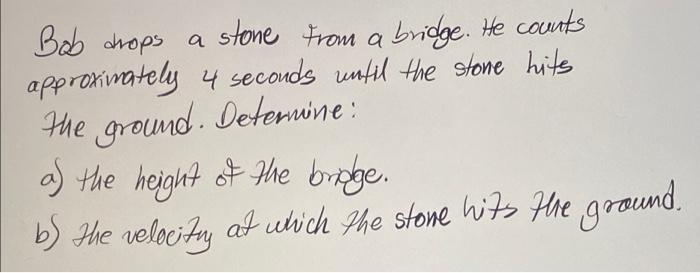 Bob drops a stone from a bridge. He counts
approximately 4 seconds until the stone hits
the ground. Determine:
a) the height of the bridge.
b) the velocity at which the stone hits the ground.